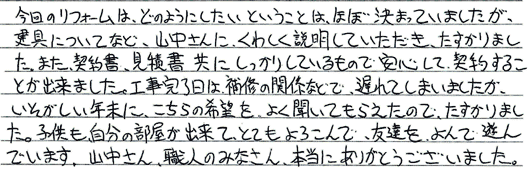 今回のリフォームは、どのようにしたいということは、ほぼ決まっていましたが、
建具についてなど、山中さんに、くわしく説明していただき、たすかりまし
た。また、契約書、見積書共にしっかりしているもので安心して契約するこ
とが出来ました。工事完了日は、補修の関係などで、遅れてしまいましたが、
いそがしい年末に、こちらの希望を、よく聞いてもらえたので、たすかりまし
た。子供も、自分の部屋が出来て、とてもよろこんで、友達を、よんで遊ん
でいます。山中さん、職人のみなさん、本当にありがとうございました。